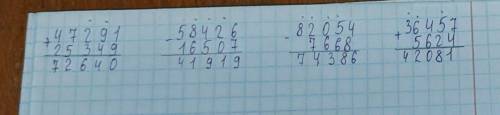 47291
+
25349
72640
58426
-
16507
41919
82054
-
7668
74386
36457
+
5624
42081